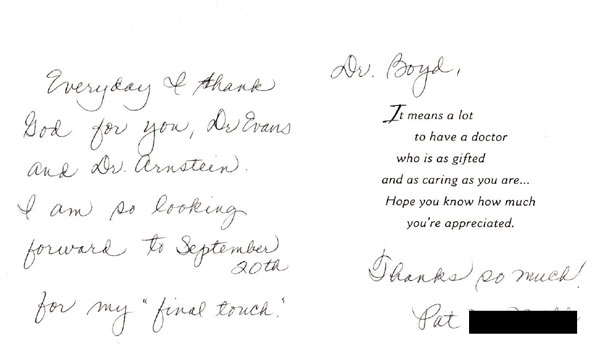 Everyday I thank
God for you, Dr Evans
and Dr. Arnstein.
I am so looking
forward to September
20th
for my "final touch."
Dr. Boyd,
It means a lot
to have a doctor
who is as gifted
and as caring as you are...
Hope you know how much
you're appreciated.
Thanks so much!
Pat